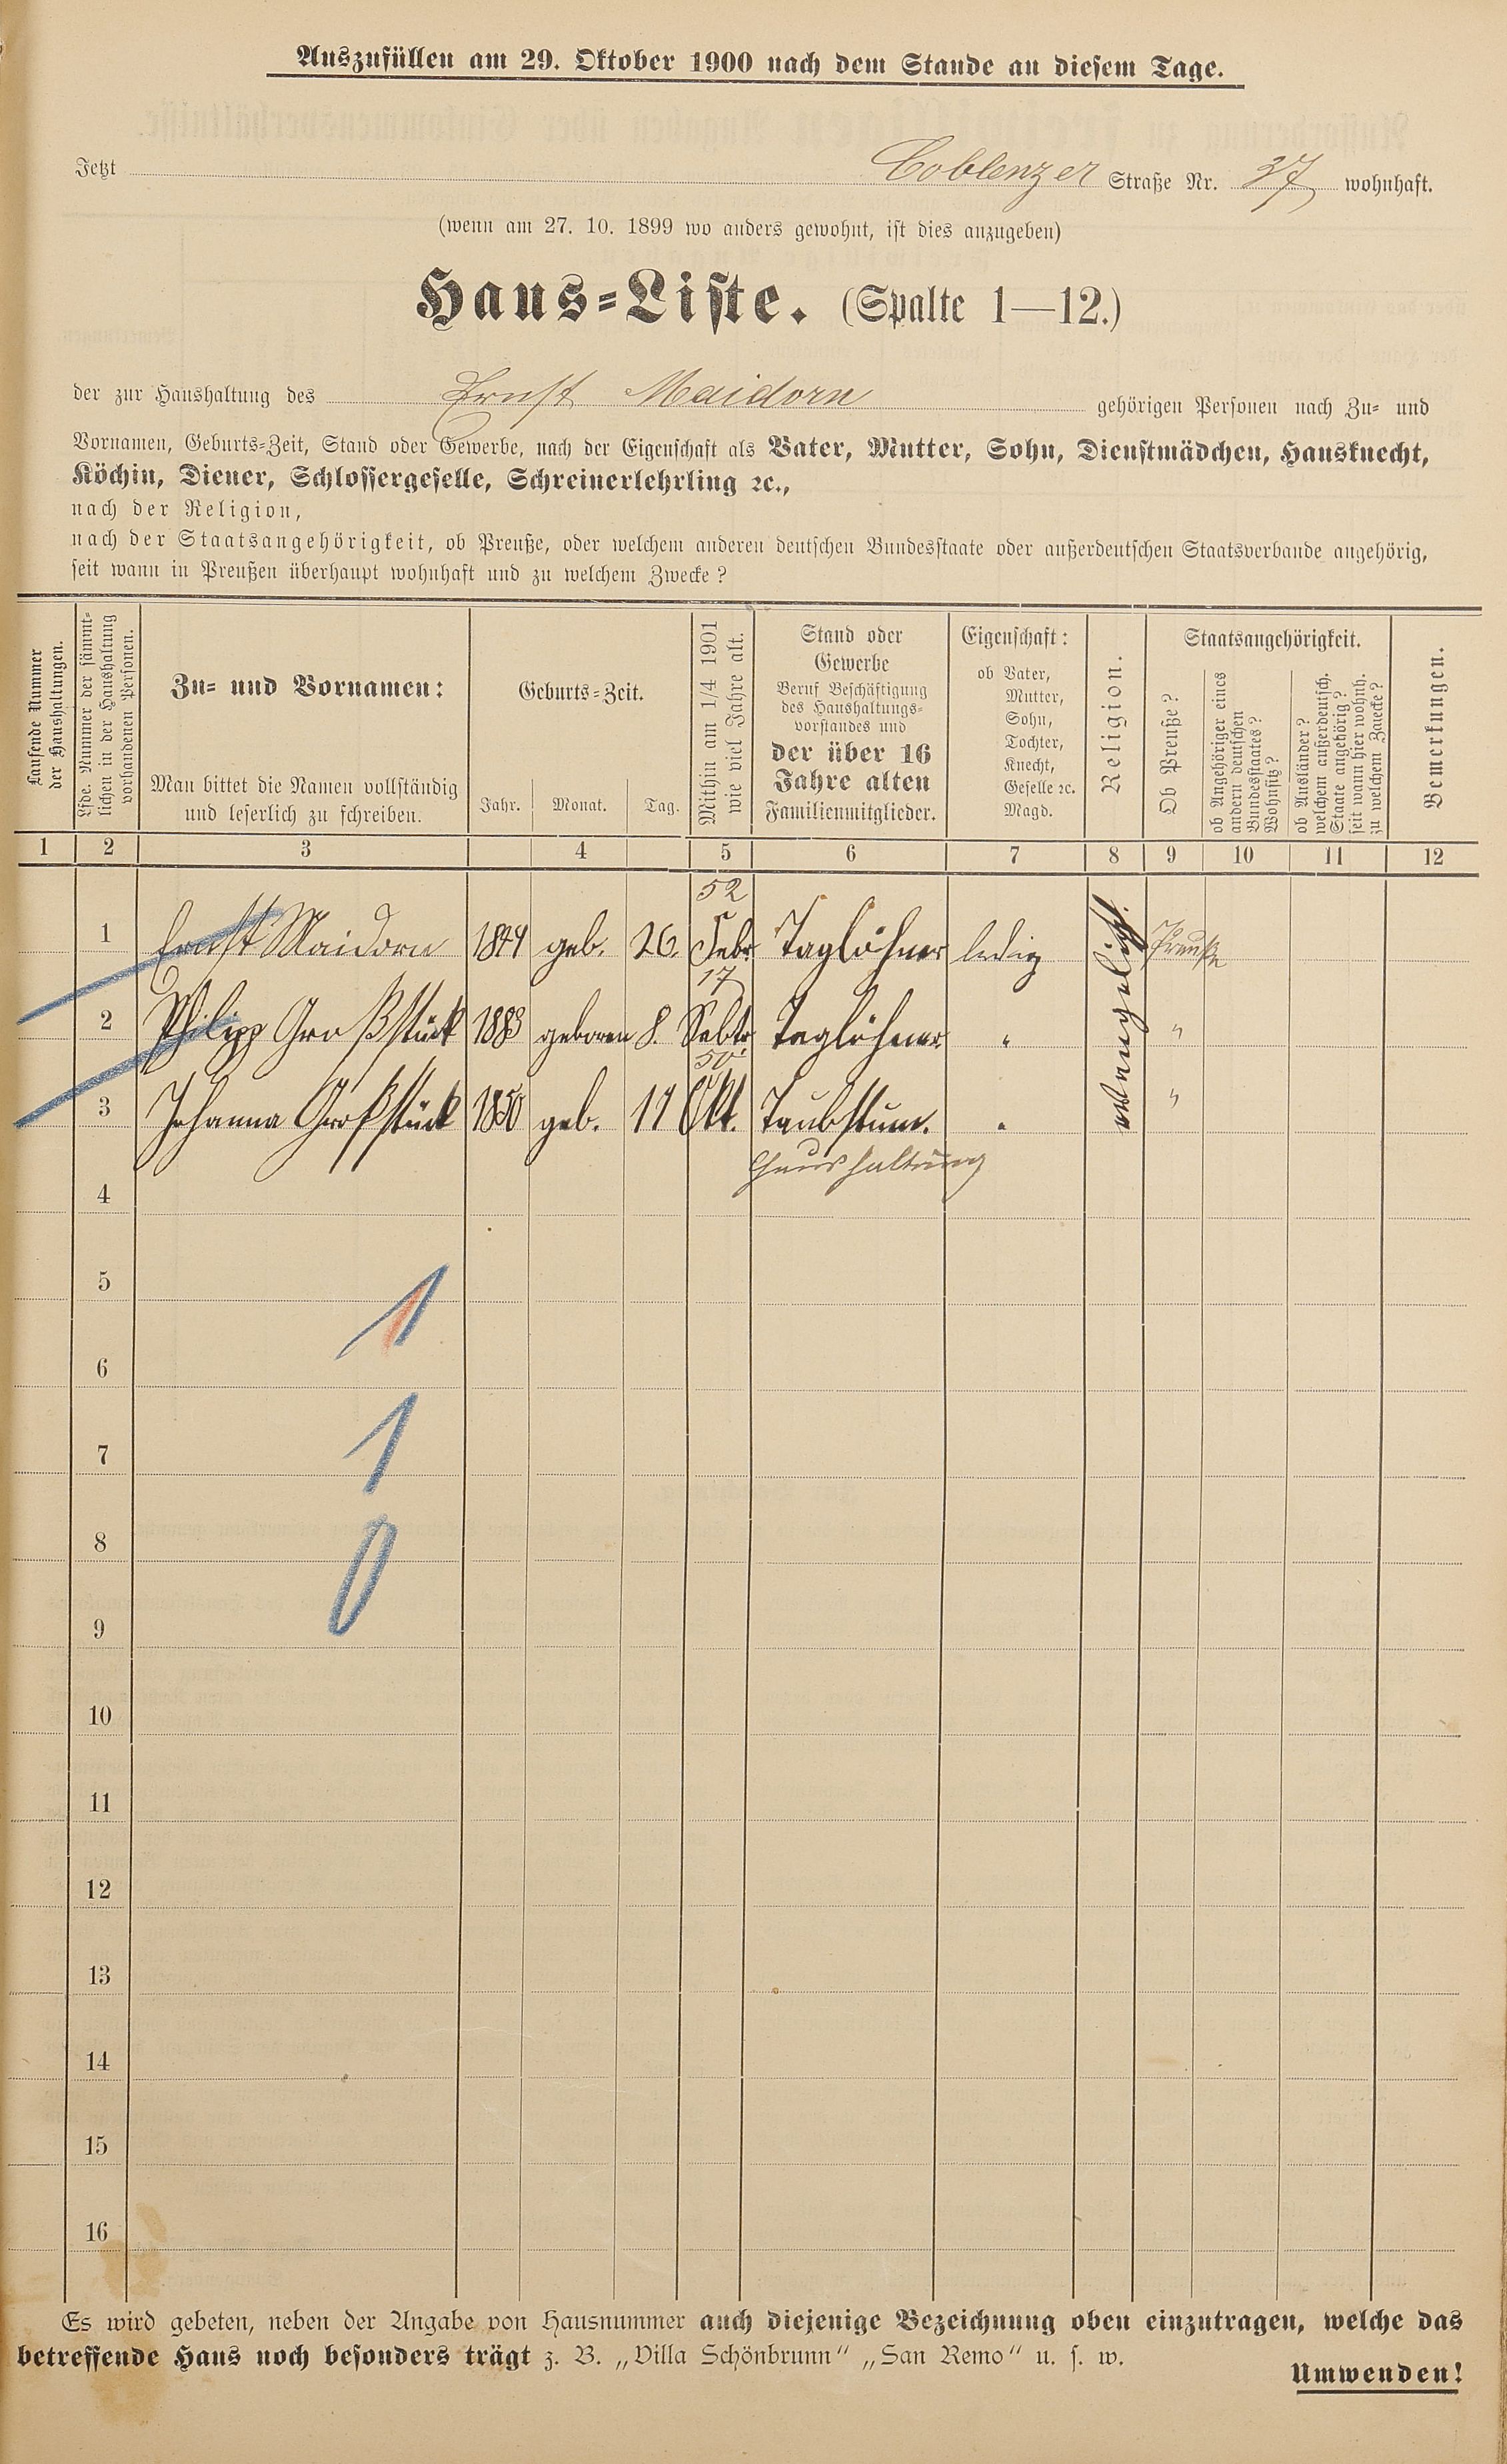 Auszufüllen am 29. Oktober 1900 nach dem Stande an diesem Tage.
Jetzt Coblenzer Straße Nr. 37 wohnhaft.
(wenn am 27. 10. 1899 wo anders gewohnt, ist dies anzugeben)
Haus-Liste. (Spalte 1—12.)
der zur Haushaltung des Ernst Maidorn gehörigen Personen nach Zu- und
Vornamen, Geburts-Zeit, Stand oder Gewerbe, nach der Eigenschaft als Vater, Mutter, Sohn, Dienstmädchen, Hausknecht,
Köchin, Diener, Schlossergeselle, Schreinerlehrling ꝛc.,
nach der Religion,
nach der Staatsangehörigkeit, ob Preuße, oder welchem anderen deutschen Bundesstaate oder außerdeutschen Staatsverbande angehörig,
seit wann in Preußen überhaupt wohnhaft und zu welchem Zwecke?
Laufende Nummer
der Haushaltungen.
Lfde. Nummer der sämmt-
lichen in der Haushaltung
vorhandenen Personen.
Zu- und Vornamen:
Man bittet die Namen vollständig
und leserlich zu schreiben.
Geburts-Zeit.
Jahr. Monat. Tag.
Mithin am 1/4 1901
wie viel Jahre alt.
Stand oder
Gewerbe
Beruf Beschäftigung
des Haushaltungs-
vorstandes und
der über 16
Jahre alten
Familienmitglieder.
Eigenschaft:
ob Vater,
Mutter,
Sohn,
Tochter,
Knecht,
Geselle ꝛc.
Magd.
Religion.
Staatsangehörigkeit.
Ob Preuße?
ob Angehöriger eines
andern deutschen
Bundesstaates?
Wohnsitz?
ob Ausländer?
welchem außerdeutsch.
Staate angehörig?
seit wann hier wohnh.
zu welchem Zwecke?
Bemerkungen.
1 2 3 4 5 6 7 8 9 10 11 12
52
1 Ernst Maidorn 1849 geb. 26. Febr. Taglöhner ledig evangelisch. Preuße
17
2 Philipp Großstück 1883 geboren 8. Sebtr. Taglöhner " "
50
3 Johanna Großstück 1850 geb. 11 Okt. Taubstum. " "
Haushaltung
4
5
1
6
7
1
8
0
9
10
11
12
13
14
15
16
Es wird gebeten, neben der Angabe von Hausnummer auch diejenige Bezeichnung oben einzutragen, welche das
betreffende Haus noch besonders trägt z. B. „Villa Schönbrunn" „San Remo" u. s. w.
Umwenden!